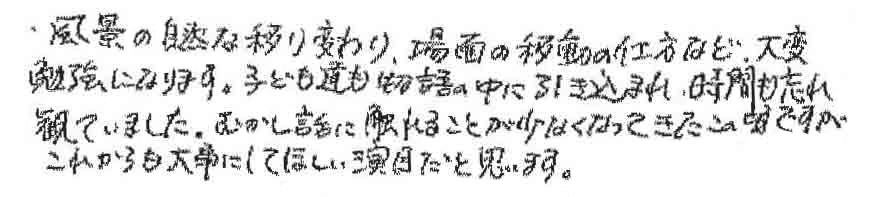 ・風景の自然な移り変わり、場面の移動の仕方など、大変
勉強になります。子ども達も物語の中に引き込まれ、時間も忘れ
観ていました。むかし話に触れることが少なくなってきたこの頃ですが
これからも大事にしてほしい演目だと思います。